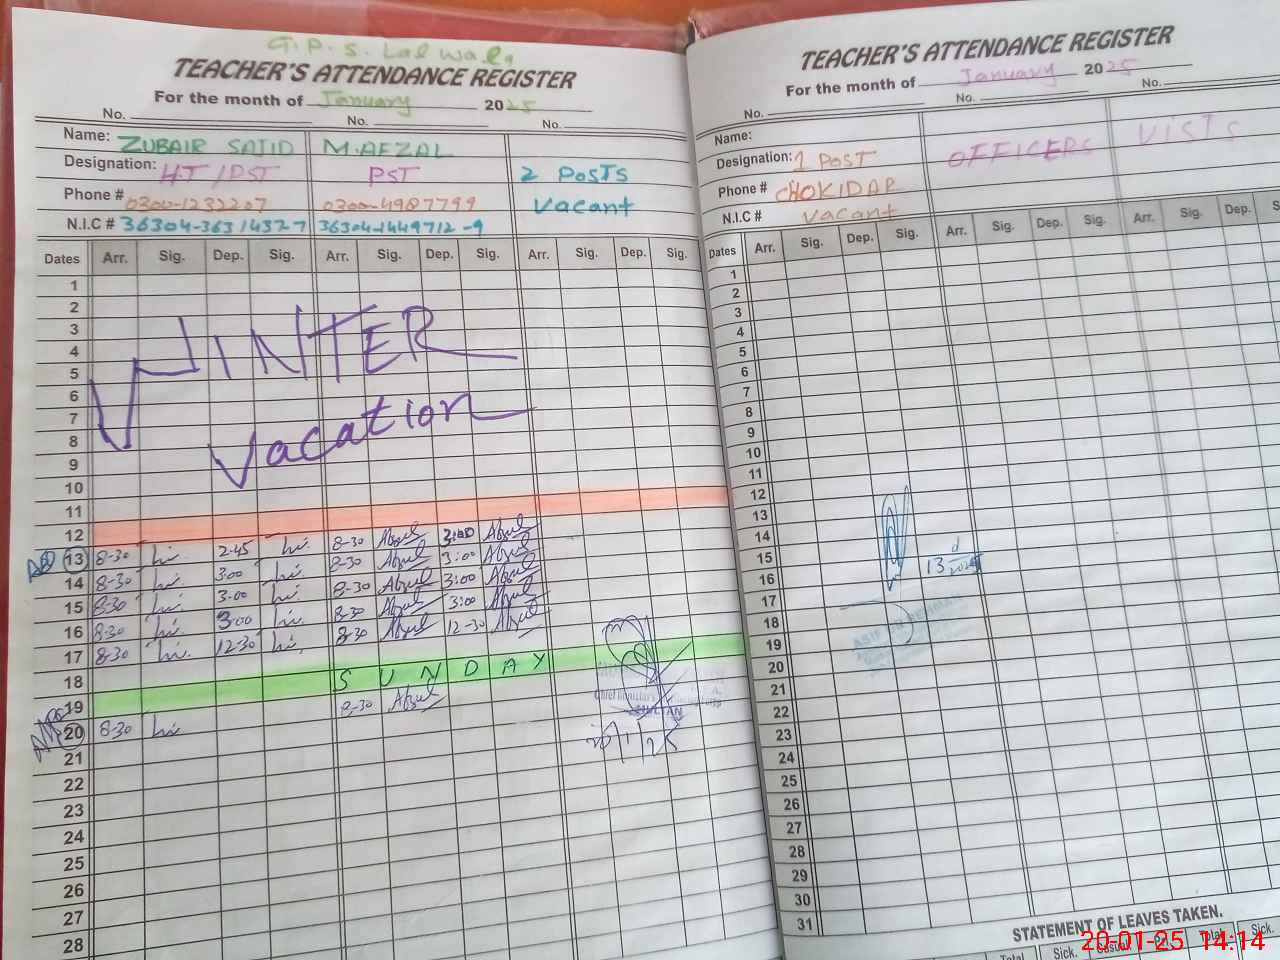 G.P.S. Lal wala
TEACHER'S ATTENDANCE REGISTER
For the month of January 2025
No. No. No.
Name: ZUBAIR SAJID M.AFZAL
Designation: HT/PST PST 2 POSTS
Phone # 0300-1232207 0300-4987799 Vacant
N.I.C # 36304-3631432-7 36304-1449712-9
Dates Arr. Sig. Dep. Sig. Arr. Sig. Dep. Sig. Arr. Sig. Dep. Sig.
1
2
3
4
5
6
7
8
9
10
11
WINTER
Vacation
12
13 8-30 2-45 8-30 Afzal 3:00 Afzal
14 8-30 3:00 8-30 Afzal 3:00 Afzal
15 8-30 3:00 8-30 Afzal 3:00 Afzal
16 8-30 3:00 8-30 Afzal 3:00 Afzal
17 8-30 12-30 8-30 Afzal 12-30 Afzal
18
19 SUNDAY
20 8-30 8-30 Afzal
20/1/25
21
22
23
24
25
26
27
28
TEACHER'S ATTENDANCE REGISTER
For the month of January 2025
No. No. No.
Name:
Designation: 1 POST OFFICERS VISTS
Phone # CHOKIDAR
N.I.C # Vacant
Dates Arr. Sig. Dep. Sig. Arr. Sig. Dep. Sig. Arr. Sig. Dep.
1
2
3
4
5
6
7
8
9
10
11
12
13
14
15
16
17
18
19
20
21
22
23
24
25
26
27
28
29
30
31
STATEMENT OF LEAVES TAKEN.
Total Sick. Casual Total Sick.
20-01-25 14:14